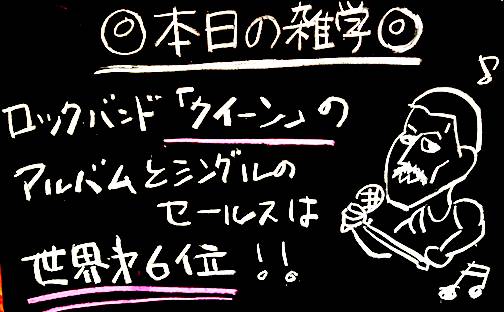 ◎本日の雑学◎
ロックバンド「クイーン」の
アルバムとシングルの
セールスは
世界第6位!!